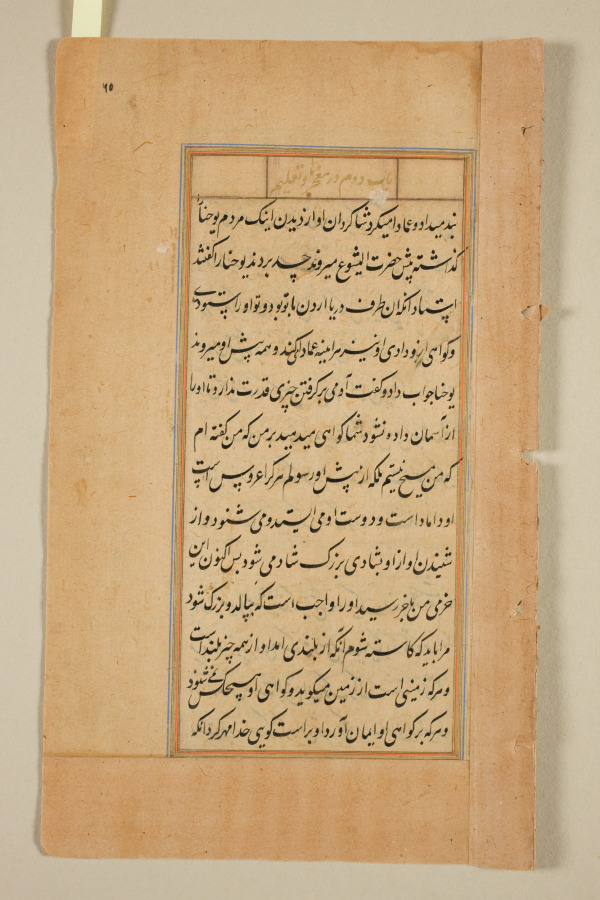 ۶۵
باب دوم در معجزها و تعلیم
پند میداد و عماد میکرد شاکردان او از دیدن اینک مردم یوحنا را
کذاشته پیش حضرت الیشوع میروند حسد بردند یوحنا را کفتند
استاد انکه ان طرف دریا اردن با تو بود و تو او را ستودی
و کواهی ازو دادی او نیز مراینه عماد می کند و همه پیش او میروند
یوخنا جواب داد و کفت آدمی بر کرفتن چیزی قدرت ندارد تا او را
از آسمان داده نشود شما کواهی میدهید بر من که من کفته ام
که من مسیح نیستم بلکه از پیش او رسولم هر کرا عروس است
او داماد است و دوست او می ایستد و می شنود و از
شنیدن اواز او بشادی بزرک شاد می شود پس اکنون این
خرمی من بآخر رسید او را واجب است که ببالد و بزرک شود
مرا باید که کاسته شوم آنکه از بلندی امد او از همه چیز بلند است
و هر که زمینی است از زمین میکوید و کواهی او هیچکس نمی شنود
و هر که بر کواهی او ایمان آورد او براست کویی خدا مهر کرد انکه